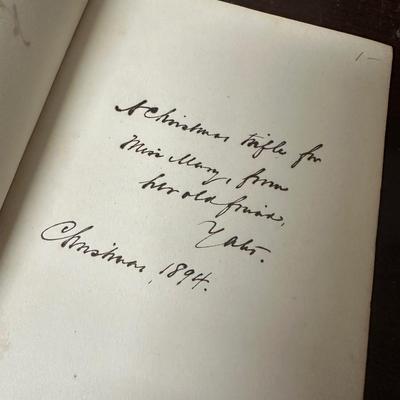 A Christmas trifle for
Miss Mary, from
her old friend,
Christmas, 1894.
1 –